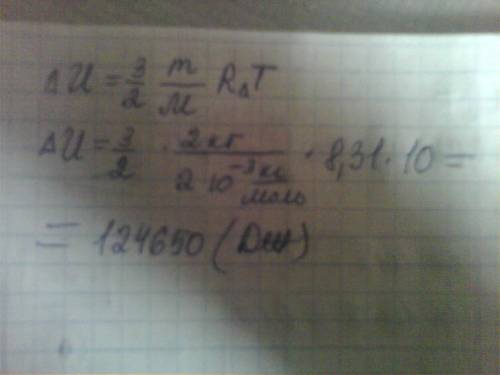 ΔU = 3/2 m/M RΔT
ΔU = 3/2 · 2кг / 2 10⁻³ кг/моль · 8,31 · 10 =
= 124650 (Дж)